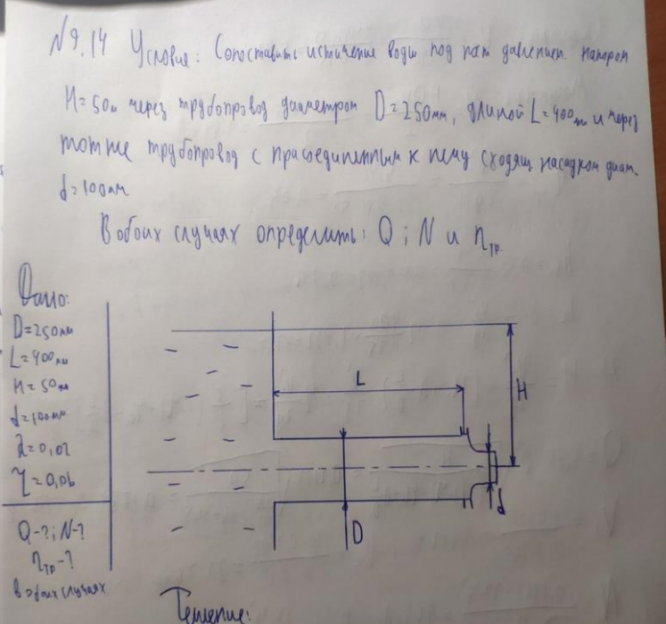 №9.14 Условие: Сопоставить истечение воды под нат давлением напором
H=50м через трубопровод диаметром D=250мм, длиной L=400мм и через
тот же трубопровод с присоединенным к нему сходящ насадком диам.
d=100мм
В обоих случаях определить: Q ; N и η тр.
Дано:
D=250мм
L=400мм
H=50м
d=100мм
λ=0,02
ζ=0,06
Q-?; N-?
η тр-?
в обоих случаях
L
H
d
D
Решение: